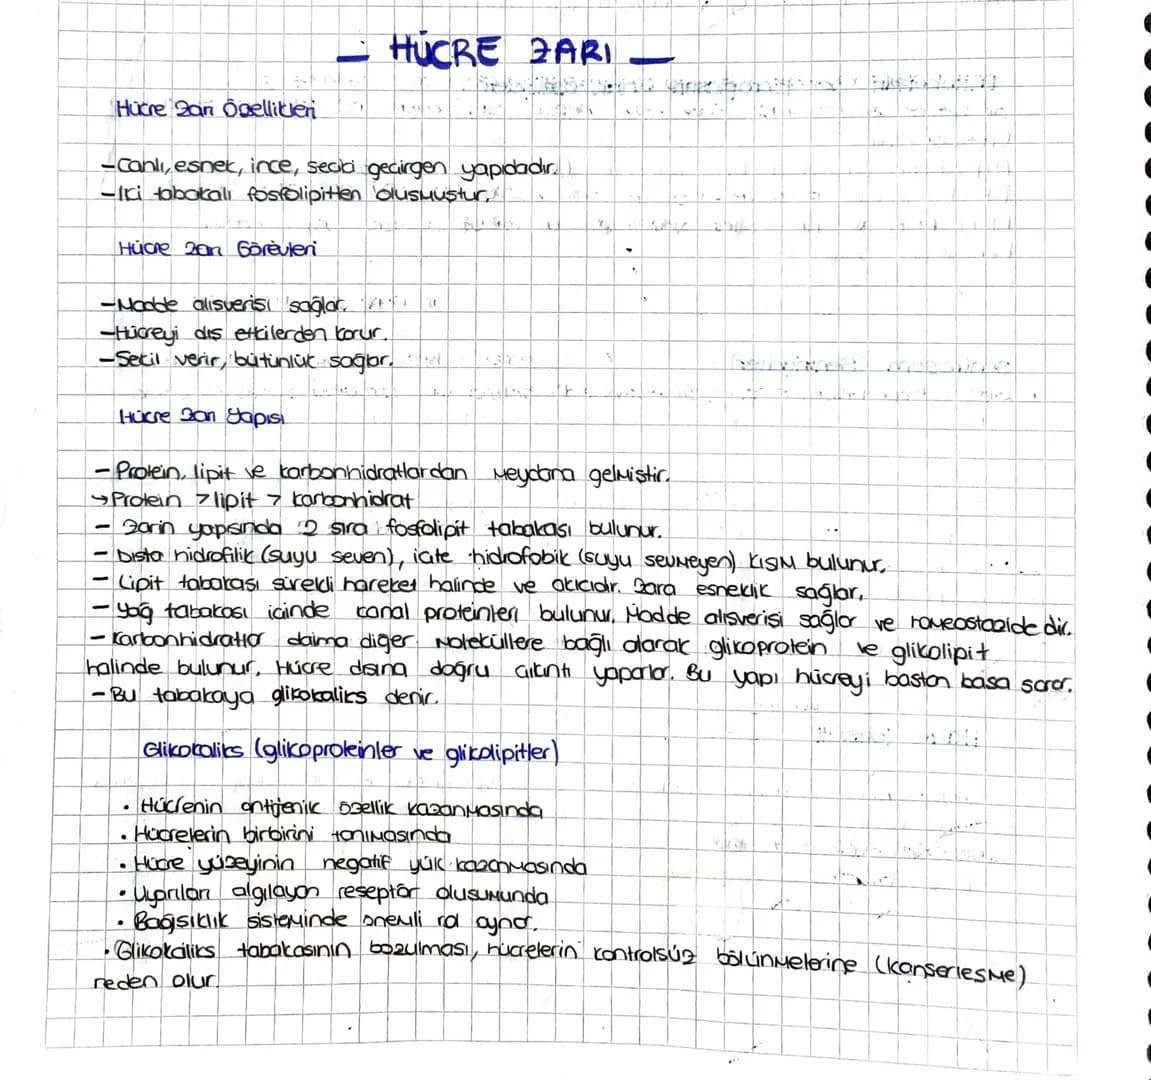 – HÜCRE ZARI –
Hücre Zarı Özellikleri
-Canlı, esnek, ince, secici gecirgen yapıdadır.
-İki tabakalı fosfolipitten olusmustur.
Hücre Zarı Görevleri
-Madde alısverisi sağlar.
-Hücreyi dıs etkilerden korur.
-Sekil verir, bütünlük sağlar.
Hücre Zarı Yapısı
- Protein, lipit ve karbonhidratlardan meydana gelmistir.
→Protein > lipit > karbonhidrat
- Zarin yapısında 2 sıra fosfolipit tabakası bulunur.
- Dısta hidrofilik (suyu seven), icte hidrofobik (suyu sevmeyen) kısım bulunur.
- Lipit tabakası sürekli hareket halinde ve akıcıdır. Zara esneklik sağlar.
- Yağ tabakası icinde kanal proteinleri bulunur. Madde alısverisi sağlar ve dir.
- Karbonhidratlar daima diğer moleküllere bağlı olarak glikoprotein ve glikolipit
halinde bulunur. Hücre dısına doğru cıkıntı yaparlar. Bu yapı hücreyi bastan basa sarar.
- Bu tabakaya glikokaliks denir.
Glikokaliks (glikoproteinler ve glikolipitler)
• Hücrenin antijenik özellik kazanmasında
• Hücrelerin birbirini tanımasında
• Hücre yüzeyinin negatif yük kazanmasında
• Uyarıları algılayan reseptör olusumunda
• Bağısıklık sisteminde önemli rol oynar.
• Glikokaliks tabakasının bozulması, hücrelerin kontrolsüz bölünmelerine (kanserlesme)
neden olur.